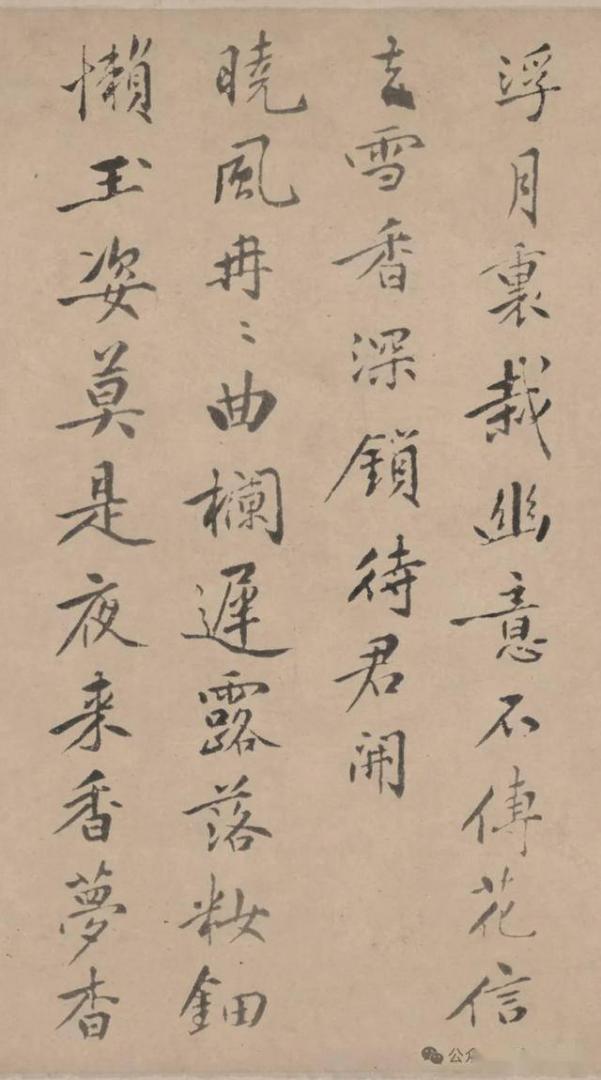 浮月裏栽幽意不傳花信
去雪香深鎖待君開
曉風冉〻曲欄遲露落妝鈿
懶玉姿莫是夜来香夢杳
公众